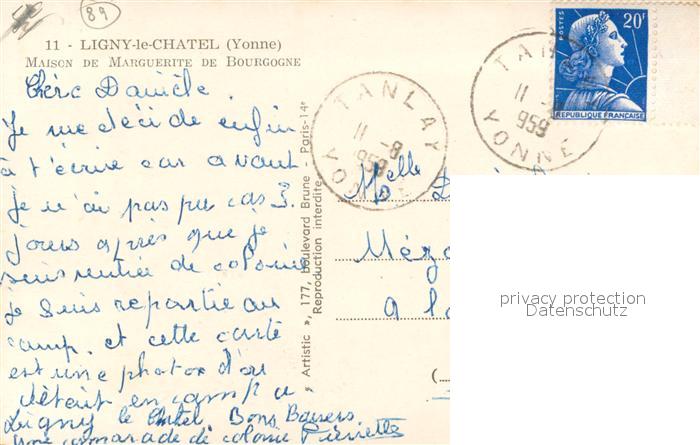 89
11 - LIGNY-le-CHATEL (Yonne)
MAISON DE MARGUERITE DE BOURGOGNE
Chère Danièle
Je me décide enfin
à t'écrire car avant
je n'ai pas pu cas 3.
jours après que je
suis rentrée de colonie
je suis repartie au
camp. et cette carte
est une photox d'ou
était en camp a
Ligny le Chatel. Bons Baisers
Une camarade de colonie Pierrette
« Artistic », 177, Boulevard Brune - Paris-14e
Reproduction interdite
TANLAY
11 -8
1959
YONNE
POSTES
20F
REPUBLIQUE FRANÇAISE
TANLAY
11
959
YONNE
Melle D
Méz
a la
(
privacy protection
Datenschutz